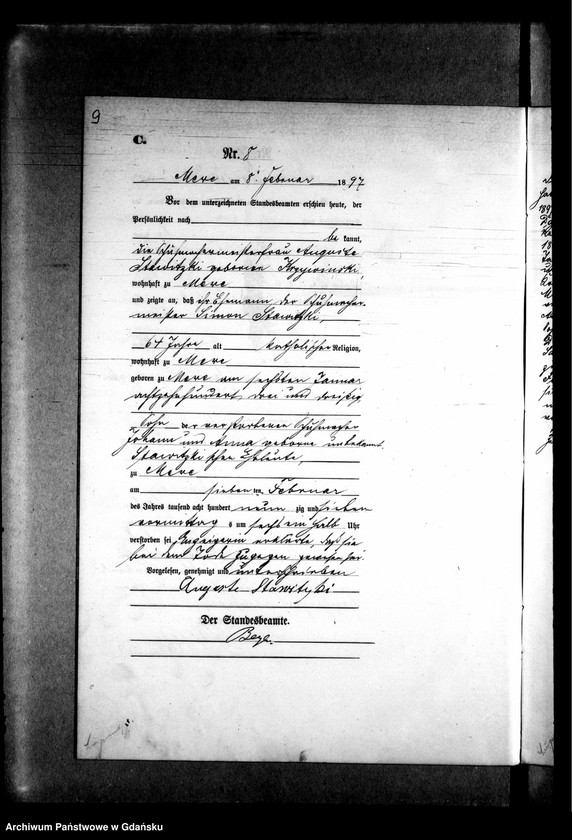 9
C.
Nr. 8
Mewe am 8. Februar 1897
Vor dem unterzeichneten Standesbeamten erschien heute, der
Persönlichkeit nach
be kannt,
die Schuhmachermeisterfrau Auguste
Stawitzki geborene
wohnhaft zu Mewe
und zeigte an, daß ihr Ehemann der Schuhmacher-
meister Simon Stawitzki,
64 Jahre alt katholischer Religion,
wohnhaft zu Mewe
geboren zu Mewe am sechsten Januar
achtzehnhundert drei und dreißig
Sohn der verstorbenen Schuhmacher
Johann und Anna geborene unbekannt
Stawitzki'schen Eheleute,
zu Mewe
am sieben ten Februar
des Jahres tausend acht hundert neun zig und sieben
vormittags um sechs ein halb Uhr
verstorben sei, Anzeigerin erklärte, daß sie
bei dem Tode zugegen gewesen sei.
Vorgelesen, genehmigt und unterschrieben
Auguste Stawitzki
Der Standesbeamte.
Archiwum Państwowe w Gdańsku